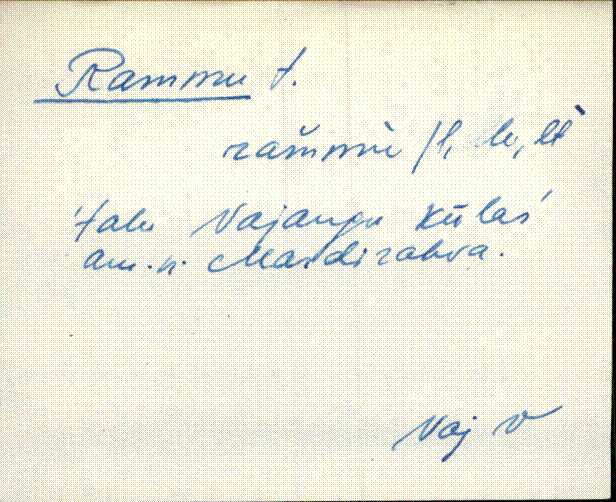 Rammu t.
rammu /l, le, lt
'talu Vajangu külas
am. n. Mardi rahva.
Vaj V